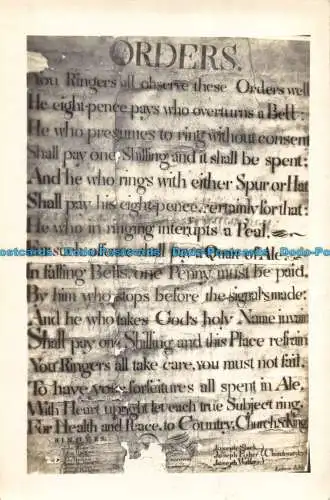 ORDERS.
You Ringers all observe these Orders well
He eight-pence pays who overturns a Bell:
He who presumes to ring without consent
Shall pay one Shilling and it shall be spent;
And he who rings with either Spur or Hat
Shall pay his eight-pence, certainly for that:
He who in ringing interupts a Peal,
For some shall pay Quart of Ale.
In falling Bells, one Penny must be paid,
By him who stops before the signal's made:
And he who takes God's holy Name in vain
Shall pay one Shilling and this Place refrain
You Ringers all take care, you must not fail,
To have your forfeitures all spent in Ale,
With Heart upright let each true Subject ring,
For Health and Peace, to Country, Church & King
RINGERS
Joseph
Joseph Fisher (Churchwarden)
Joseph